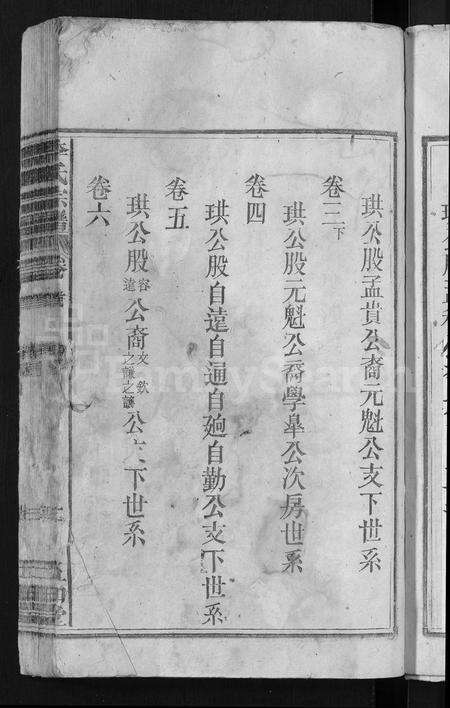 珙公股孟貴公裔元魁公支下世系
卷三下
珙公股元魁公裔學臯公次房世系
卷四
珙公股自遠自通自廹自勤公支下世系
卷五
珙公股容遠公裔文欽之謙之讓公支下世系
卷六
李氏宗譜 卷首
FamilySearch